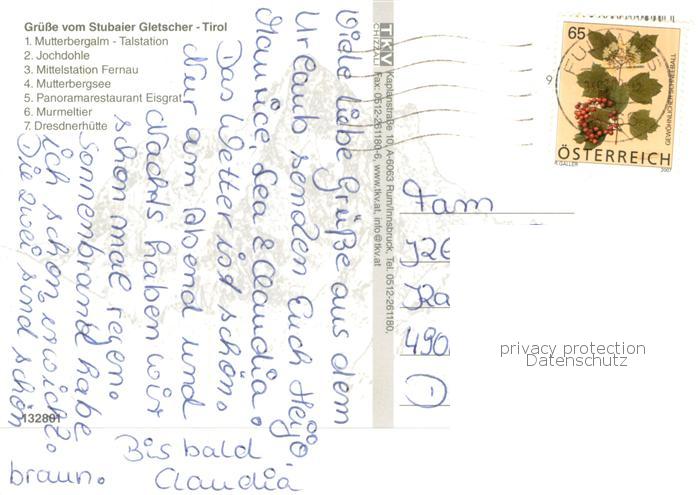 Grüße vom Stubaier Gletscher - Tirol
1. Mutterbergalm - Talstation
2. Jochdohle
3. Mittelstation Fernau
4. Mutterbergsee
5. Panoramarestaurant Eisgrat
6. Murmeltier
7. Dresdnerhütte
132801
Viele liebe Grüße aus dem
Urlaub senden Euch Heijo
Maurice, Lea & Claudia.
Das Wetter ist schön.
Nur am Abend und
Nachts haben wir
schon mal regen.
Sonnenbrand habe
ich schon erwischt.
Die zwei sind schön
braun.
Bis bald
Claudia
TKV
CHIZZALI
Kaplanstraße 70, A-6063 Rum/Innsbruck, Tel. 0512-261180,
Fax: 0512-261180-6, www.tkv.at, info@tkv.at
65
GEWÖHNLICHER SCHNEEBALL
ÖSTERREICH
R. GALLER
2007
Fam
490
D
privacy protection
Datenschutz